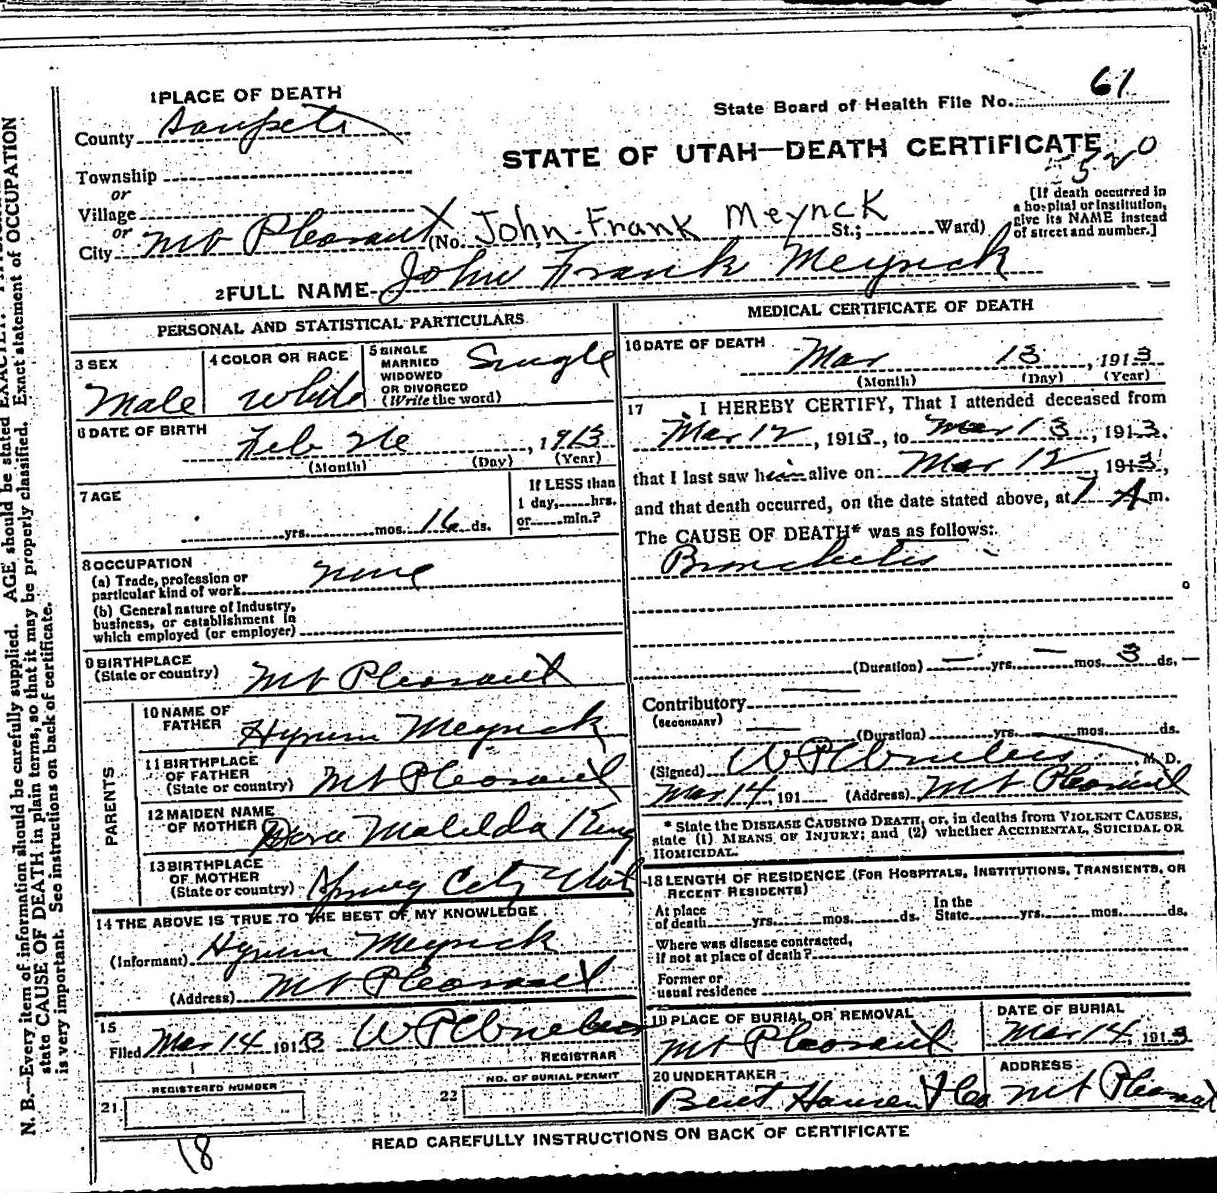 61
1 PLACE OF DEATH
State Board of Health File No.
County Sanpete
STATE OF UTAH—DEATH CERTIFICATE
520
Township
or
Village
or
City Mt Pleasant (No. John Frank Meynck St.; Ward)
[If death occurred in
a hospital or institution,
give its NAME instead
of street and number.]
2 FULL NAME John Frank Meynck
PERSONAL AND STATISTICAL PARTICULARS
3 SEX
Male
4 COLOR OR RACE
White
5 SINGLE
MARRIED
WIDOWED
OR DIVORCED
(Write the word)
Single
6 DATE OF BIRTH
Feb , 1913
(Month) (Day) (Year)
7 AGE
yrs. mos. 16 ds.
If LESS than
1 day, hrs.
or min.?
8 OCCUPATION
(a) Trade, profession or
particular kind of work none
(b) General nature of Industry,
business, or establishment in
which employed (or employer)
9 BIRTHPLACE
(State or country) Mt Pleasant
PARENTS
10 NAME OF
FATHER Hyrum Meynck
11 BIRTHPLACE
OF FATHER
(State or country) Mt Pleasant
12 MAIDEN NAME
OF MOTHER Dora Matilda King
13 BIRTHPLACE
OF MOTHER
(State or country) Spring City Utah
14 THE ABOVE IS TRUE TO THE BEST OF MY KNOWLEDGE
(Informant) Hyrum Meynck
(Address) Mt Pleasant
15
Filed Mar 14 1913
REGISTRAR
REGISTERED NUMBER
21
NO. OF BURIAL PERMIT
22
MEDICAL CERTIFICATE OF DEATH
16 DATE OF DEATH
Mar 13, 1913
(Month) (Day) (Year)
17 I HEREBY CERTIFY, That I attended deceased from
Mar 12, 1913, to Mar 13, 1913,
that I last saw him alive on Mar 12, 1913,
and that death occurred, on the date stated above, at 7 A m.
The CAUSE OF DEATH* was as follows:
Bronchitis
(Duration) — yrs. — mos. 3 ds.
Contributory
(SECONDARY)
(Duration) yrs. mos. ds.
(Signed) M. D.
Mar 14, 191 (Address) Mt Pleasant
* State the DISEASE CAUSING DEATH, or, in deaths from VIOLENT CAUSES,
state (1) MEANS OF INJURY; and (2) whether ACCIDENTAL, SUICIDAL OR
HOMICIDAL.
18 LENGTH OF RESIDENCE (FOR HOSPITALS, INSTITUTIONS, TRANSIENTS, OR
RECENT RESIDENTS)
At place
of death yrs. mos. ds.
In the
State yrs. mos. ds.
Where was disease contracted,
if not at place of death?
Former or
usual residence
19 PLACE OF BURIAL OR REMOVAL
Mt Pleasant
DATE OF BURIAL
Mar 14, 1913
20 UNDERTAKER
Bent Hansen & Co
ADDRESS
Mt Pleasant
READ CAREFULLY INSTRUCTIONS ON BACK OF CERTIFICATE
18
N. B.—Every item of information should be carefully supplied. AGE should be stated EXACTLY.
state CAUSE OF DEATH in plain terms, so that it may be properly classified. Exact statement of OCCUPATION
is very important. See instructions on back of certificate.